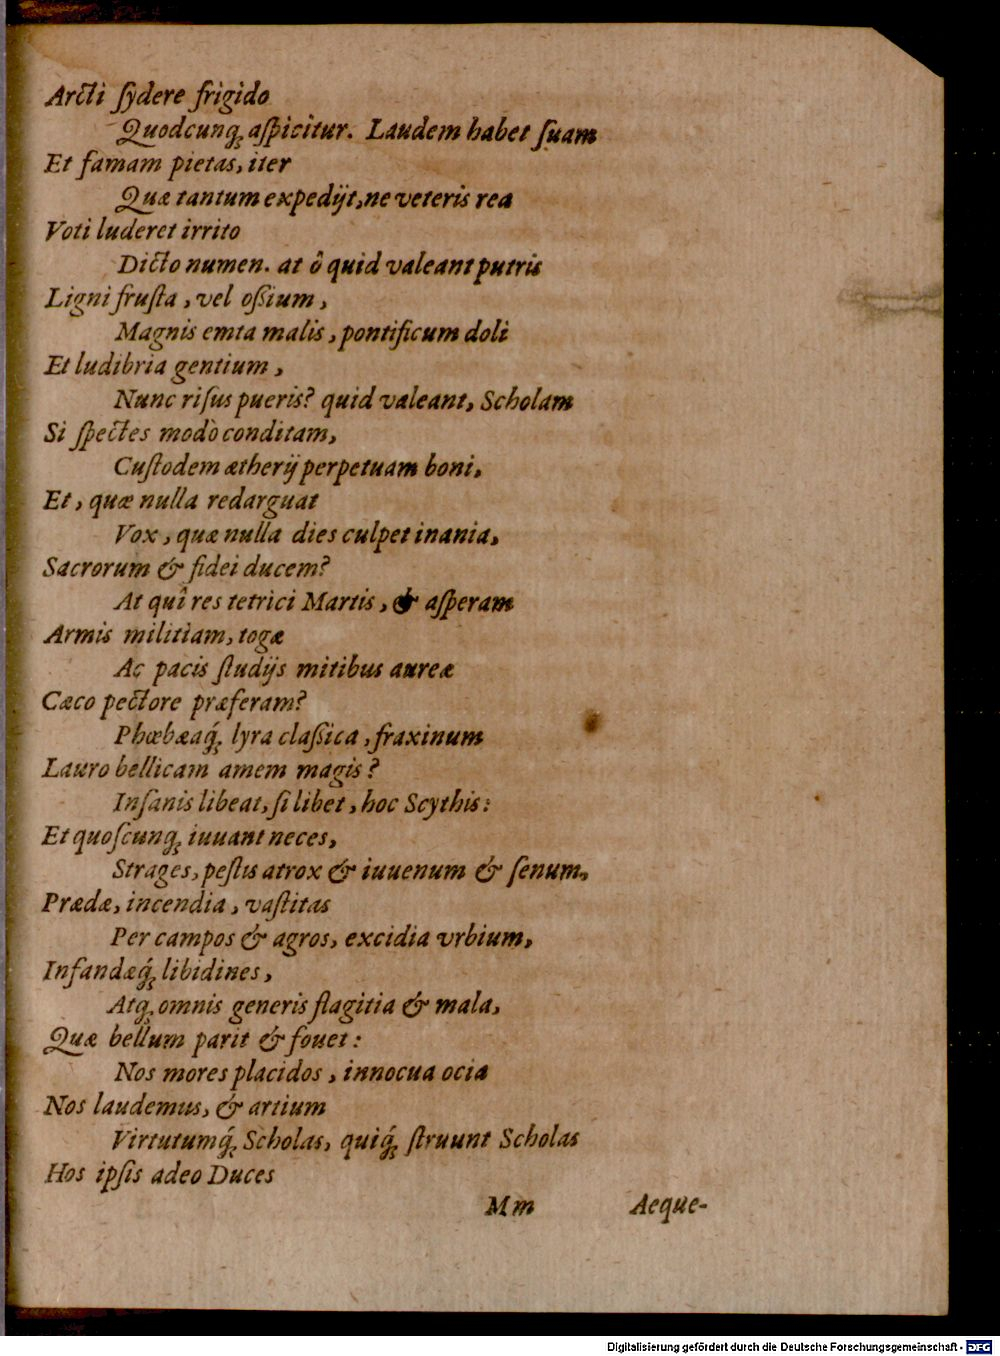 Arcti ſydere frigido
Quodcunq́; aſpicitur. Laudem habet ſuam
Et famam pietas, iter
Quæ tantum expedijt, ne veteris rea
Voti luderet irrito
Dicto numen. at ô quid valeant putris
Ligni fruſta, vel oſſium,
Magnis emta malis, pontificum doli
Et ludibria gentium,
Nunc riſus pueris? quid valeant, Scholam
Si ſpectes modò conditam,
Cuſtodem ætherij perpetuam boni,
Et, quæ nulla redarguat
Vox, quæ nulla dies culpet inania,
Sacrorum & fidei ducem?
At quî res tetrici Martis, & aſperam
Armis militiam, togæ
Ac pacis ſtudijs mitibus aureæ
Cæco pectore præferam?
Phœbæaq́; lyra claſſica, fraxinum
Lauro bellicam amem magis?
Inſanis libeat, ſi libet, hoc Scythis:
Et quoſcunq; iuuant neces,
Strages, peſtis atrox & iuuenum & ſenum,
Prædæ, incendia, vaſtitas
Per campos & agros, excidia vrbium,
Infandæq́; libidines,
Atq; omnis generis flagitia & mala,
Quæ bellum parit & fouet:
Nos mores placidos, innocua ocia
Nos laudemus, & artium
Virtutumq́; Scholas, quiq́; ſtruunt Scholas
Hos ipſis adeo Duces
Mm Aeque-
Digitalisierung gefördert durch die Deutsche Forschungsgemeinschaft - DFG